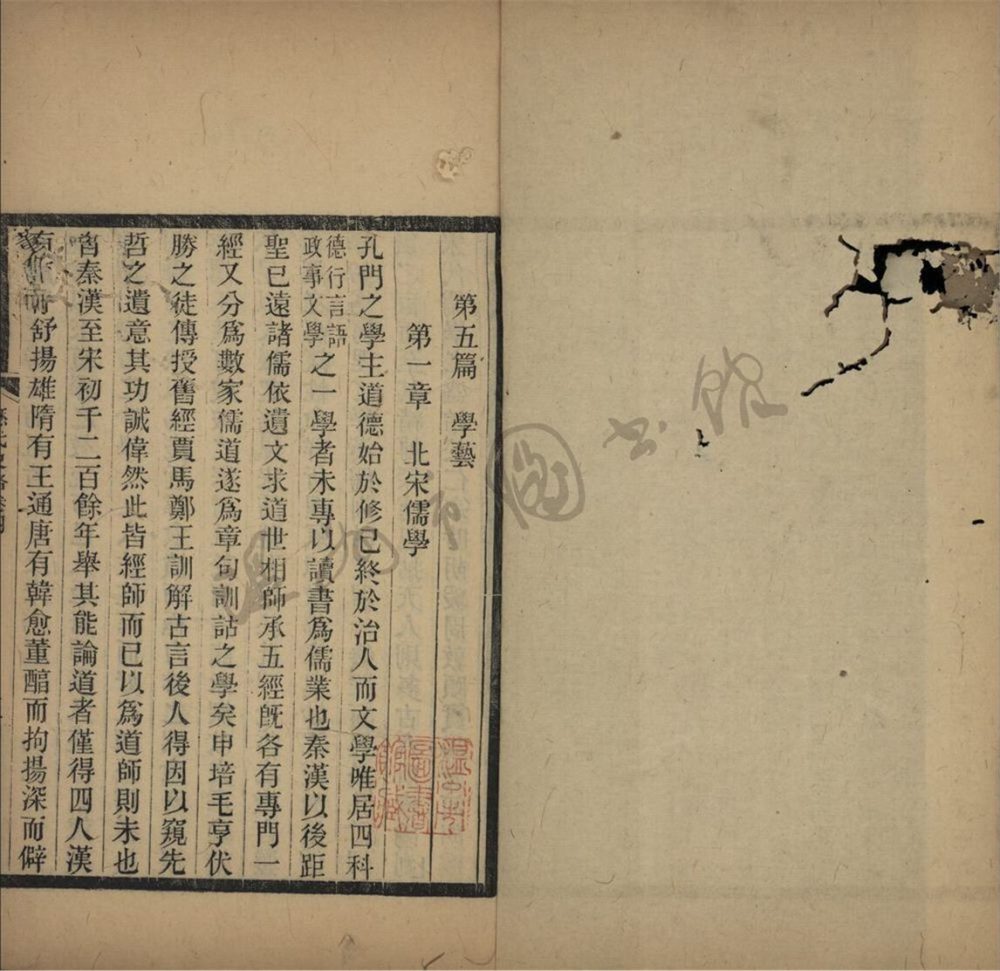 第五篇 學藝
第一章 北宋儒學
孔門之學主道德始於修己終於治人而文學唯居四科
德行言語政事文學之一學者未專以讀書爲儒業也秦漢以後距
聖已遠諸儒依遺文求道世相師承五經既各有專門一
經又分爲數家儒道遂爲章句訓詁之學矣申培毛亨伏
勝之徒傳授舊經賈馬鄭王訓解古言後人得因以窺先
哲之遺意其功誠偉然此皆經師而已以爲道師則未也
自秦漢至宋初千二百餘年舉其能論道者僅得四人漢
有董仲舒揚雄隋有王通唐有韓愈董醇而拘揚深而僻
溫州市圖書館
溫州市圖書館藏